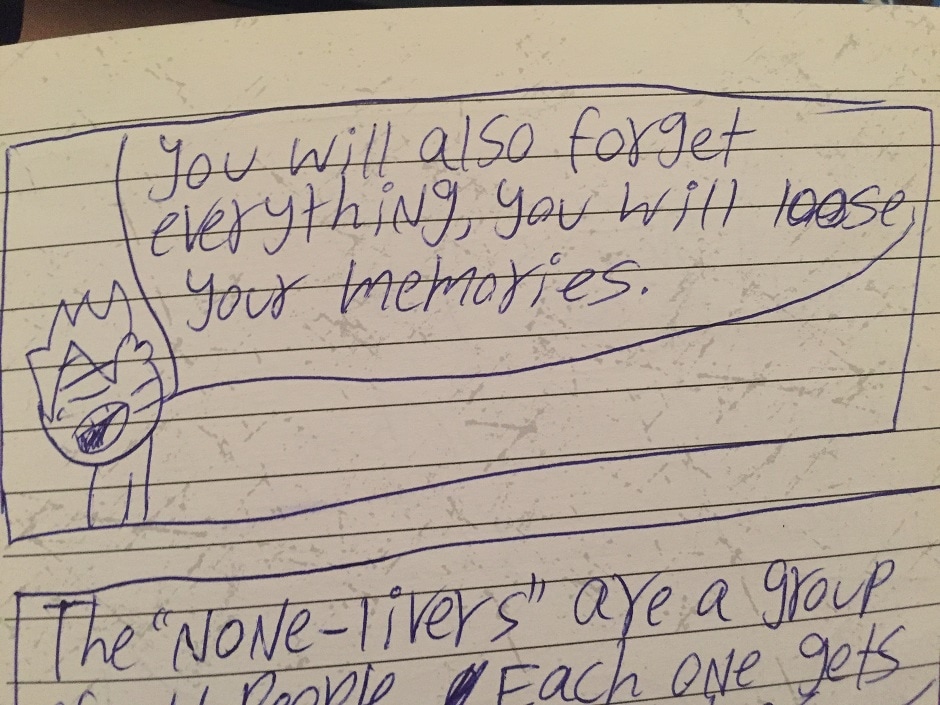 you will also forget
everything, you will loose
your memories.
The "NONe-livers" are a group
People. Each one gets